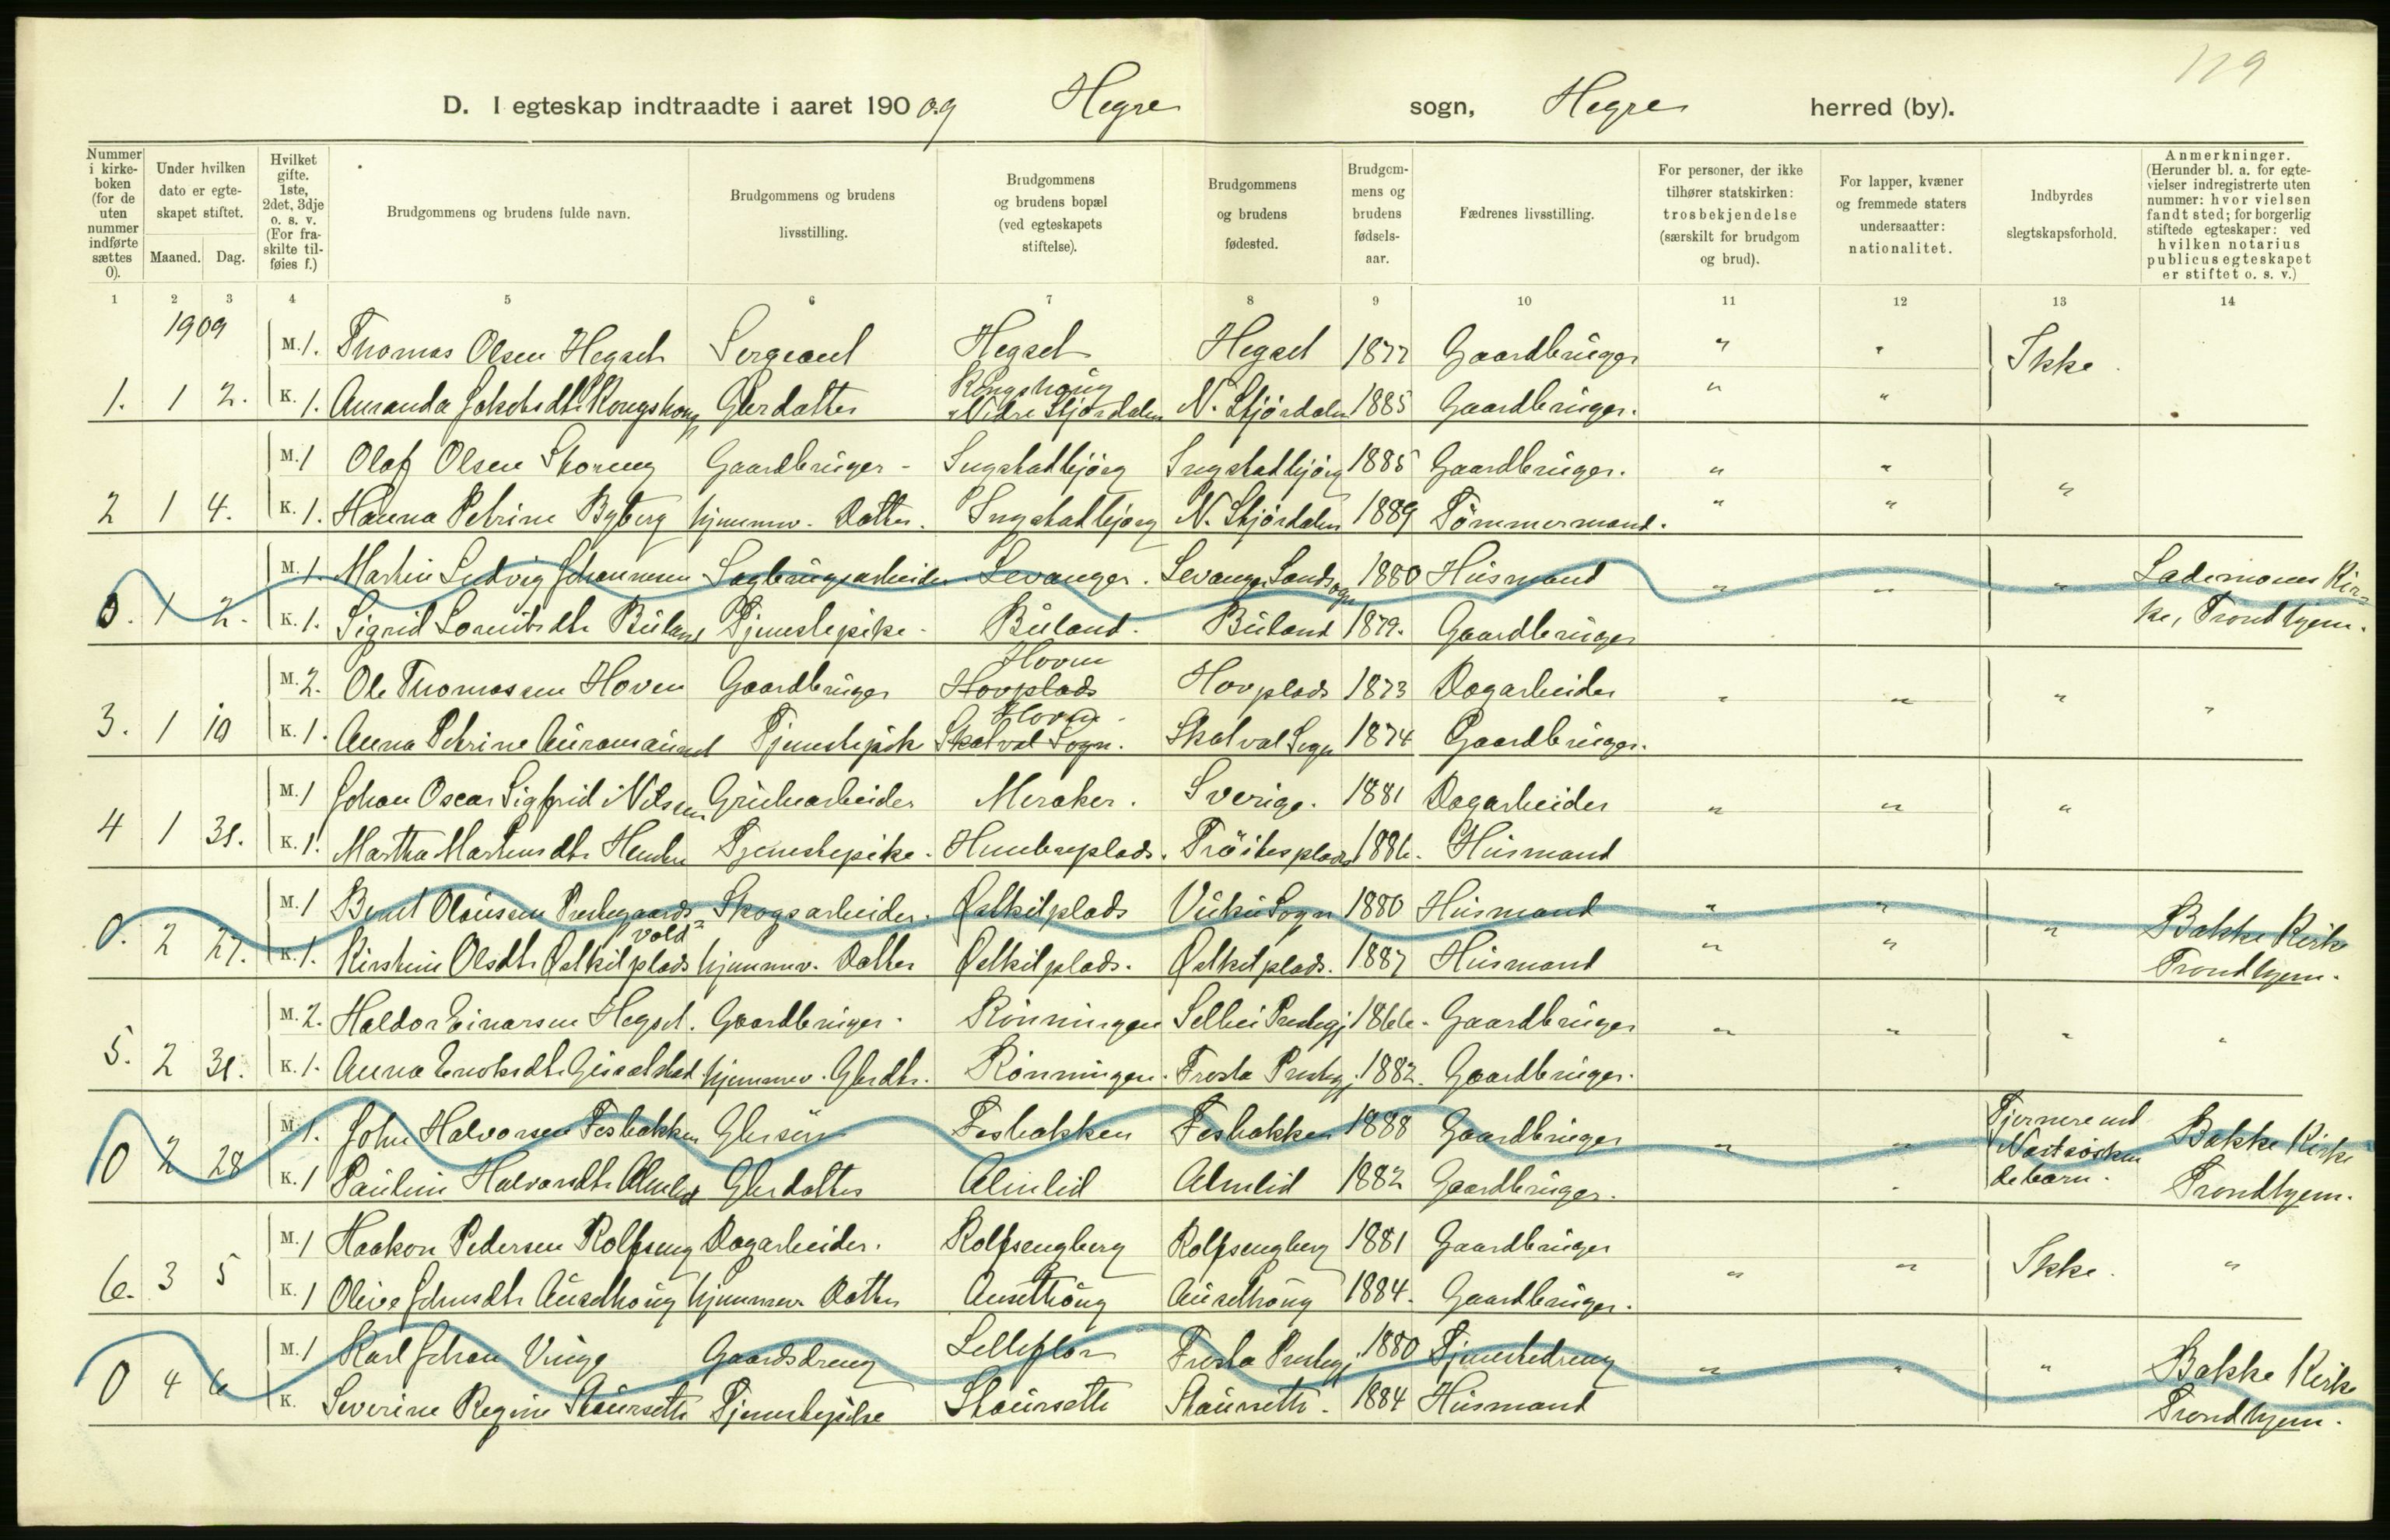 119
D. I egteskap indtraadte i aaret 190 09 Hegre sogn, Hegre herred (by).
Nummer i kirke-boken (for de uten nummer indførte sættes 0).
Under hvilken dato er egte-skapet stiftet.
Maaned. Dag.
Hvilket gifte. 1ste, 2det, 3dje o. s. v. (For fra-skilte til-føies f.)
Brudgommens og brudens fulde navn.
Brudgommens og brudens livsstilling.
Brudgommens og brudens bopæl (ved egteskapets stiftelse).
Brudgommens og brudens fødested.
Brudgom-mens og brudens fødsels-aar.
Fædrenes livsstilling.
For personer, der ikke tilhører statskirken: trosbekjendelse (særskilt for brudgom og brud).
For lapper, kvæner og fremmede staters undersaatter: nationalitet.
Indbyrdes slegtskapsforhold.
Anmerkninger. (Herunder bl. a. for egte-vielser indregistrerte uten nummer: hvor vielsen fandt sted; for borgerlig stiftede egteskaper: ved hvilken notarius publicus egteskapet er stiftet o. s. v.)
1 2 3 4 5 6 7 8 9 10 11 12 13 14
1909
M. 1. Thomas Olsen Hegset Sergeant Hegset Hegset 1877 Gaardbruger " " Ikke.
1. 1 2. K. 1. Amanda Jakobsdtr. Kongshaug Gbrdatter Kongshaug Nedre Stjørdalen N. Stjørdalen 1885 Gaardbruger. " "
M. 1 Olaf Olsen Gaardbruger - Ingstadbjørg Ingstadbjørg 1885 Gaardbruger. " " "
2 1 4. K. 1. Hanna Petrine Byberg hjemmev. Datter. Ingstadbjørg N. Stjørdalen 1889 Tømmermand. " "
M. 1. Martin Ludvig Johannesen Sagbrugsarbeider Levanger. Levanger Landsogn 1880 Husmand " " " Lademoens Kir-
0. 1 2. K. 1. Sigrid Lorntsdtr. Buland Tjenestepike - Buland. Buland 1879. Gaardbruger ke, Trondhjem.
M. 2. Ole Thomassen Hoven Gaardbruger Hovplads Hoven Hovplads 1873 Dagarbeider " " " "
3. 1 10 K. 1. Anna Petrine Auramaunet Tjenestepike Skatval Sogn. Hoven Skatval Sogn 1874 Gaardbruger.
M. 1 Johan Oscar Sigfrid Nilsen Grubearbeider Meraker. Sverige. 1881 Dagarbeider " " "
4 1 31. K. 1. Martha Martinsdtr. Tjenestepike. 1886. Husmand
M. 1 Bernt Olaussen Prestegaards-vold Skogsarbeider. Østkilplads Vuku Sogn 1880 Husmand " " " Bakke Kirke
0. 2 27. K. 1. Kirstine Olsdtr. Østkilplads hjemmev. Datter Østkilplads. Østkilplads. 1887 Husmand " " Trondhjem.
M. 2. Haldor Einarsen Hegset. Gaardbruger. Rønningen Selbu Prestegj. 1866. Gaardbruger " " " "
5. 2 31. K. 1. Anna hjemmev. Gbrdtr. Rønningen. Frosta Prestegj. 1882. Gaardbruger.
M. 1. John Halvorsen Fosbakken Gbrsøn Fosbakken Fosbakken 1888 Gaardbruger " " Fjernere end Næstsøskendebarn. Bakke Kirke
0 2 28 K. 1 Pauline Halvorsdtr. Almlid Gbrdatter Almlid Almlid 1882 Gaardbruger. " Trondhjem.
M. 1 Haakon Pedersen Rolfseng Dagarbeider. Rolfsengberg Rolfsengberg 1881 Gaardbruger " " Ikke. "
6. 3 5 K. 1 Olive Johnsdtr. Ausethaug hjemmev. Datter Ausethaug Ausethaug 1884. Gaardbruger.
M. 1 Karl Johan Vinge Gaardsdreng Frosta Prestegj. 1880 Tjenestedreng " " " Bakke Kirke
0 4 6 K. Severine Regine Staursette Tjenestepike Staursette Staursette. 1884 Husmand Trondhjem.